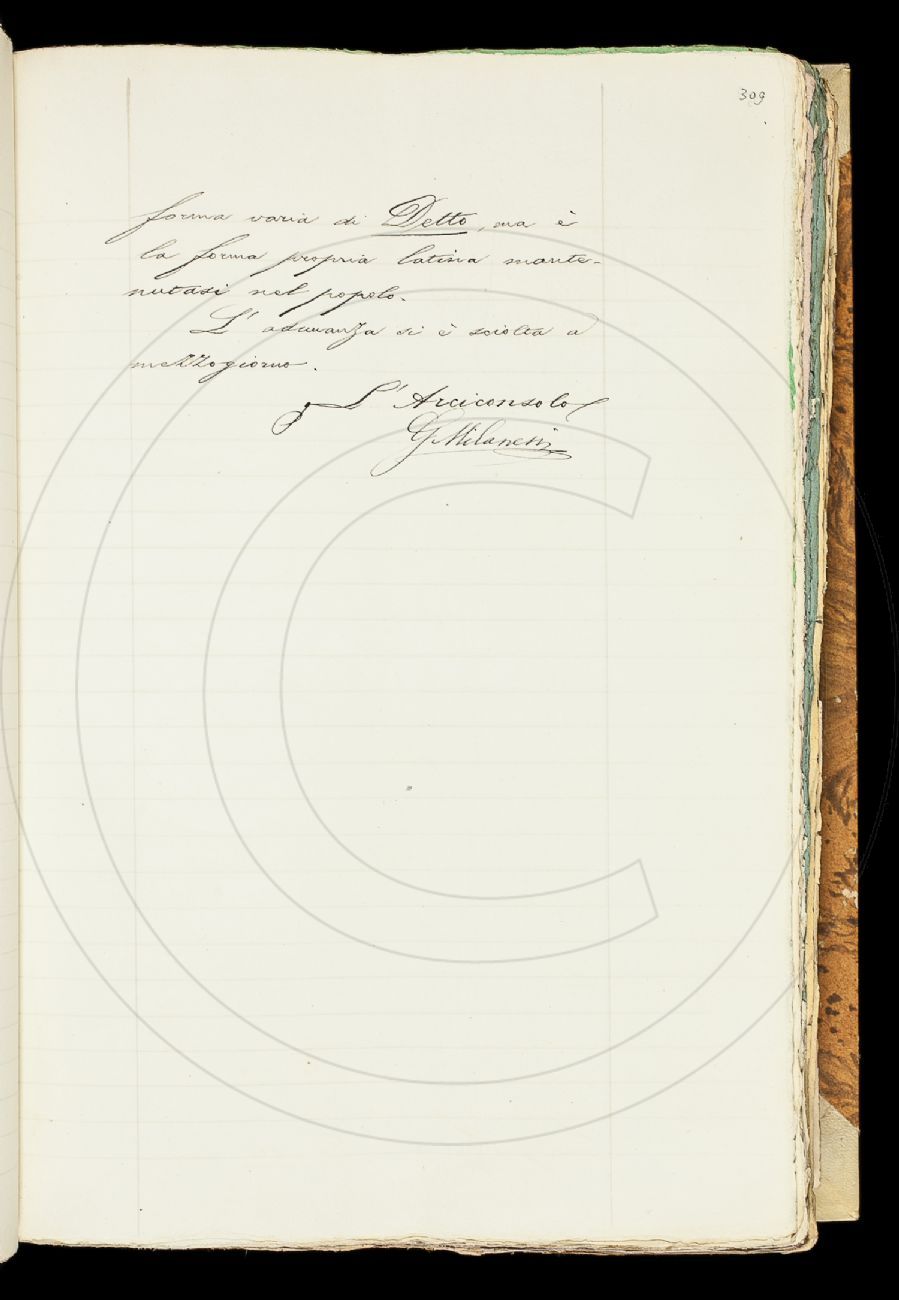 309
forma varia di Detto, ma è
la forma propria latina mante-
nutasi nel popolo.
L'adunanza si è sciolta a
mezzogiorno.
L'Arciconsolo
G. Milanesi